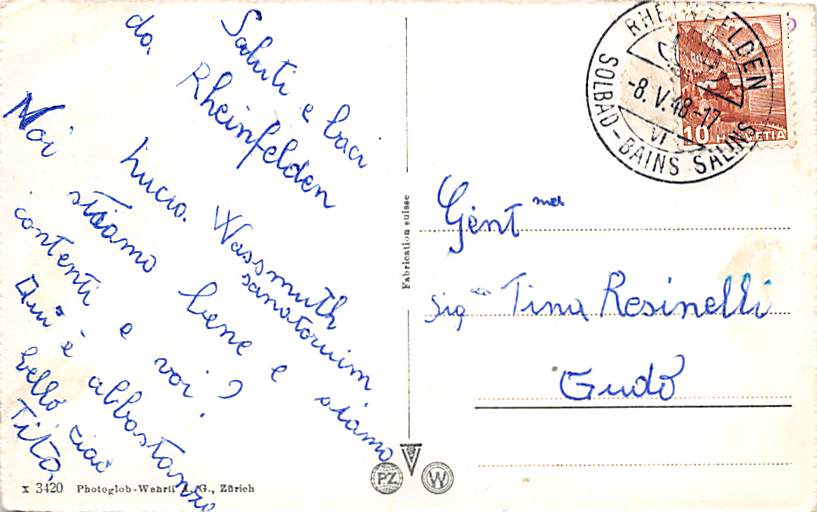 Saluti e baci
da Rheinfelden
Lucia Wassmuth
sanatorium
Noi stiamo bene e siamo
contenti e voi?
Qui è abbastanza
bello ciao
Tito.
x 3420 Photoglob-Wehrli A.G., Zürich
Fabrication suisse
PZ
W
RHEINFELDEN
-8.V.48.-17
VI
SOLBAD-BAINS SALINS
10 HELVETIA
Gent ma
Sig na Tina Resinelli
Gudo